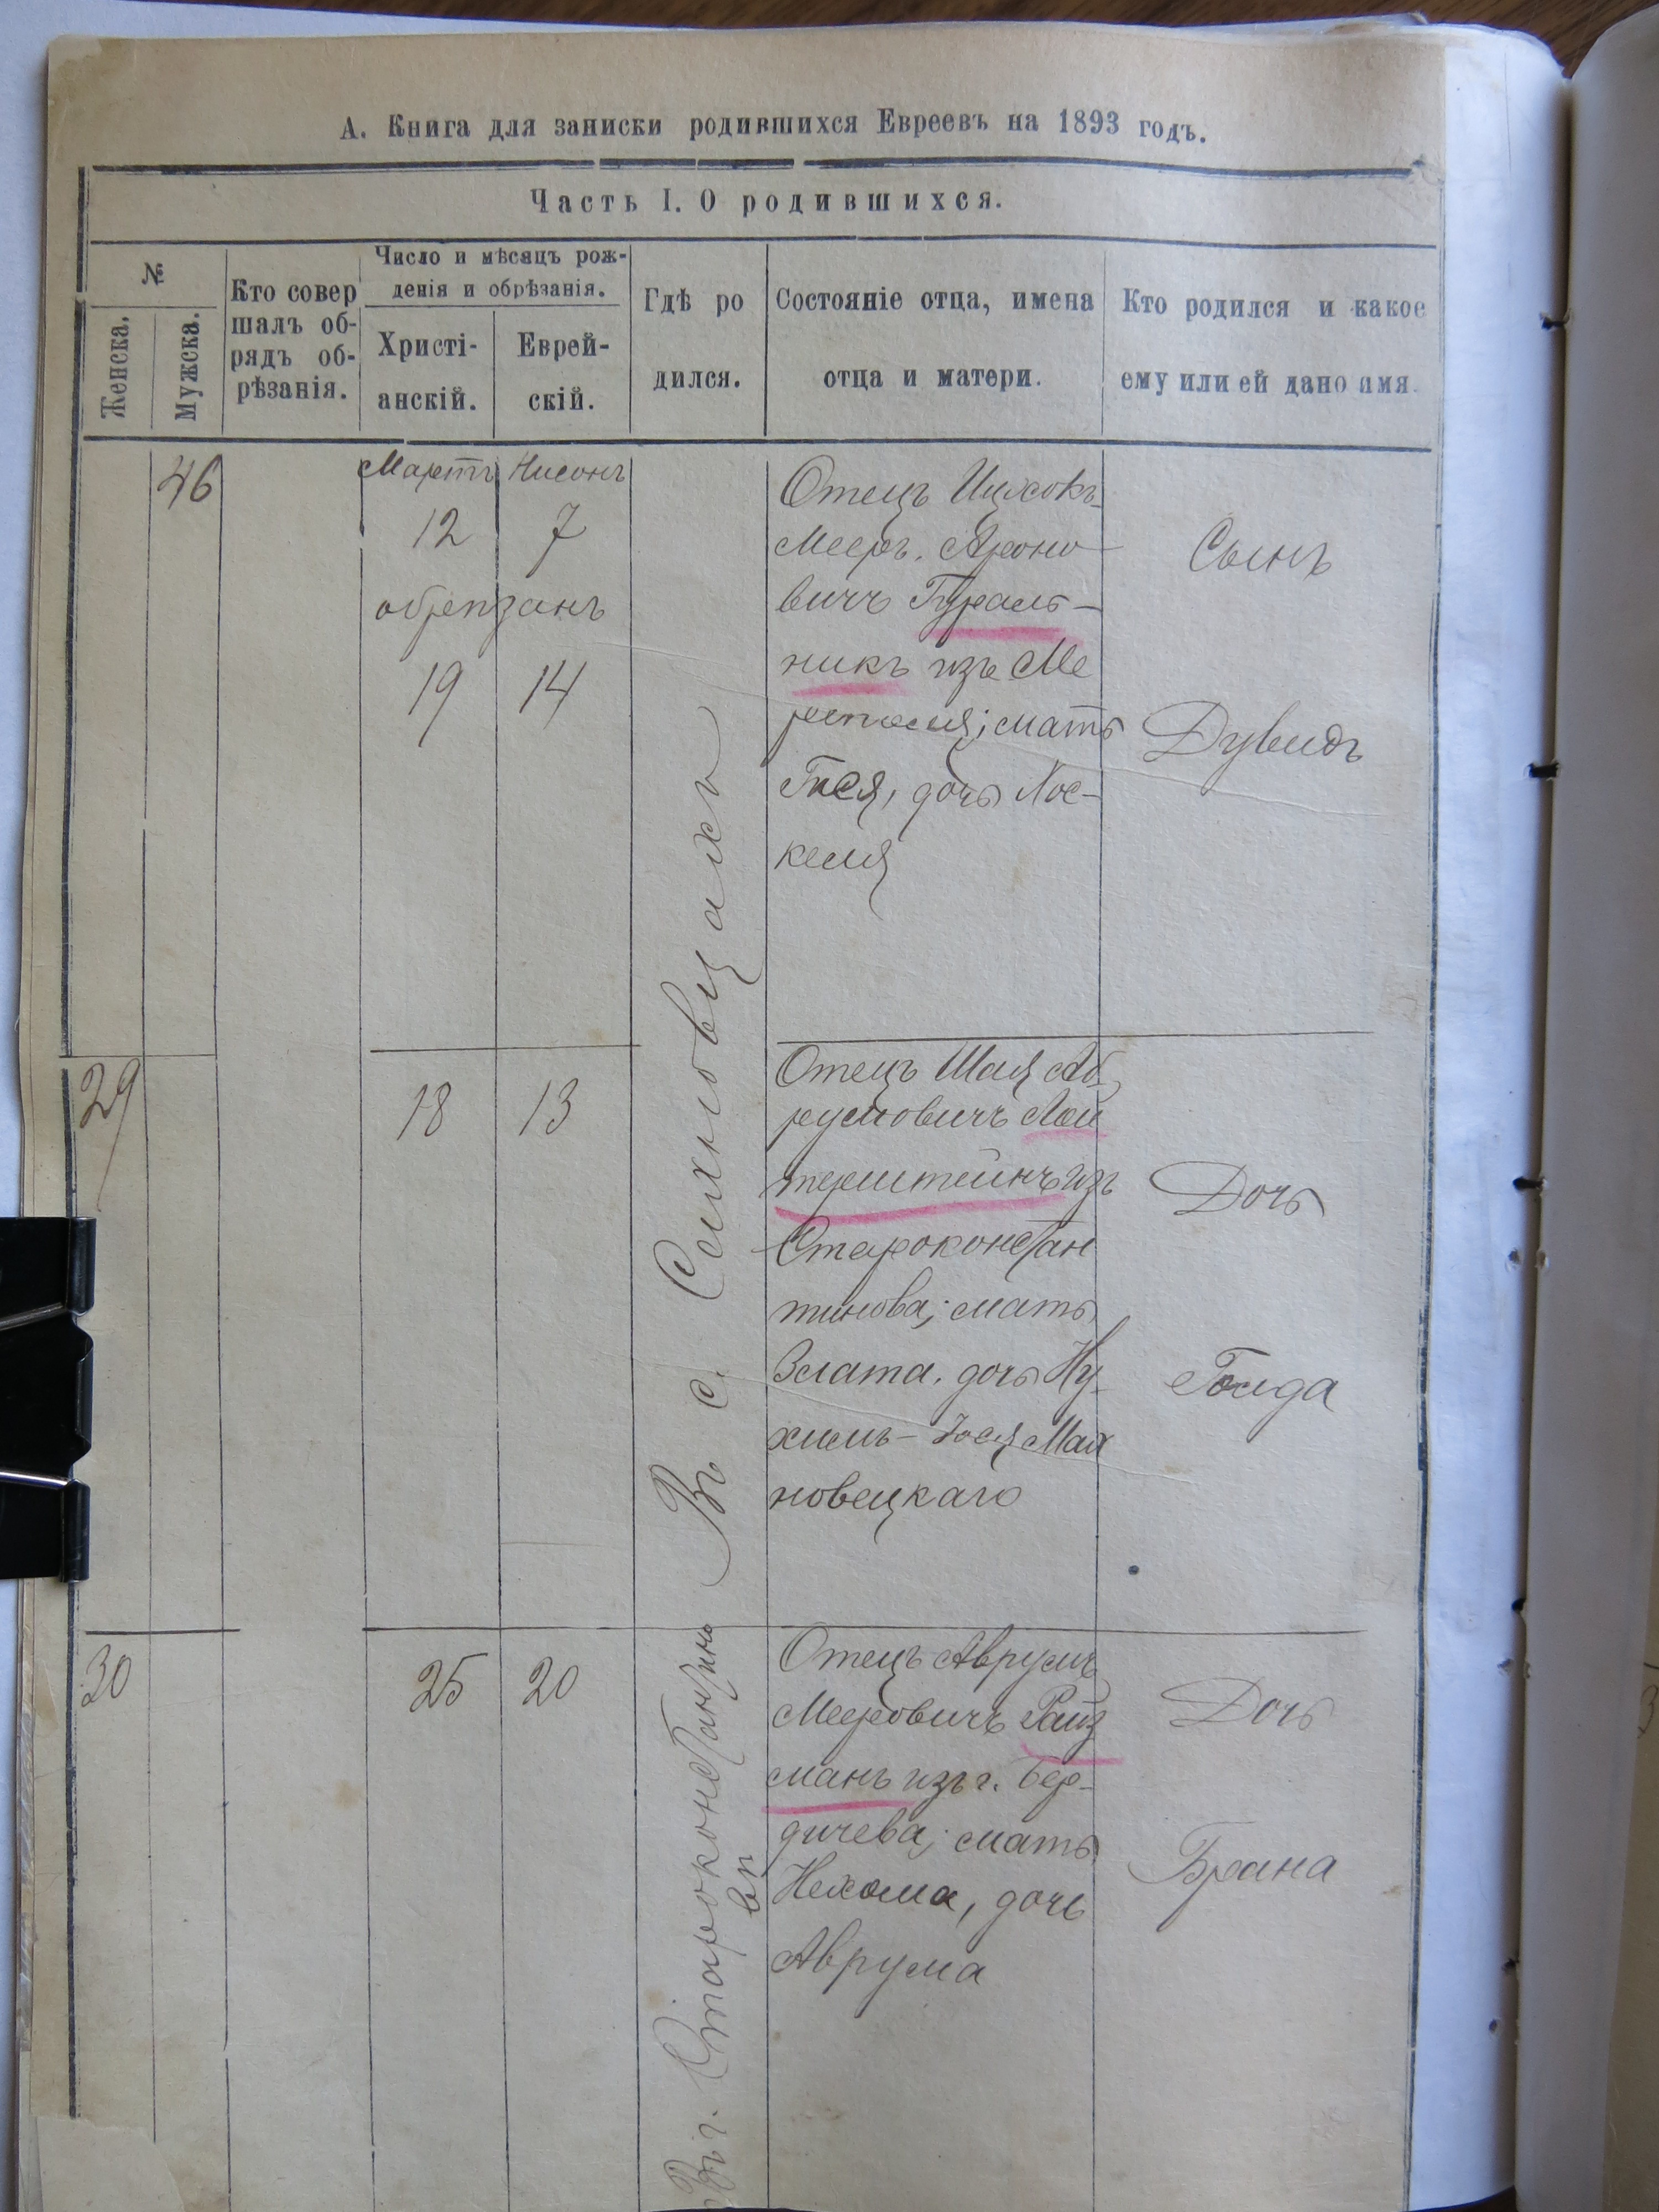 А. Книга для записки родившихся Евреевъ на 1893 годъ.
Часть I. О родившихся.
№
Женска.
Мужска.
Кто совер
шалъ об-
рядъ об-
рѣзанія.
Число и мѣсяцъ рож-
денія и обрѣзанія.
Христі-
анскій.
Еврей-
скій.
Гдѣ ро
дился.
Состояніе отца, имена
отца и матери.
Кто родился и какое
ему или ей дано имя.
46
Мартъ Нисонъ
12 7
обрѣзанъ
19 14
Въ с. Сахновцахъ
Отецъ Ицхокъ-
Мееръ Ароно-
вичъ Гураль-
никъ изъ Ме
мать
Гися, дочь Хос-
келя
Сынъ
Дувидъ
29
18 13
Отецъ Шая Аб-
румовичъ Лой
терштейнъ изъ
Староконстан
тинова; мать
Злата, дочь Ну-
химъ-Іося Мах
новецкаго
Дочь
Голда
30
25 20
Въ г. Староконстантино
вѣ
Отецъ Аврумъ
Мееровичъ Райз
манъ изъ г. Бер-
дичева; мать
Нехома, дочь
Аврума
Дочь
Брана